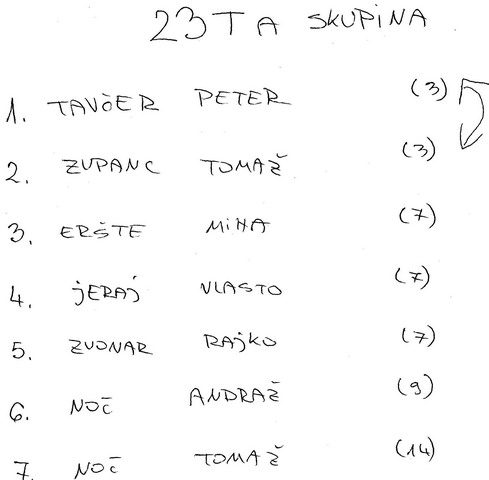 23TA SKUPINA
1. TAVČER PETER (3)
2. ZUPANC TOMAŽ (3)
3. ERŠTE MIHA (7)
4. JERAJ VLASTO (7)
5. ZVONAR RAJKO (7)
6. NOČ ANDRAŽ (9)
7. NOČ TOMAŽ (14)